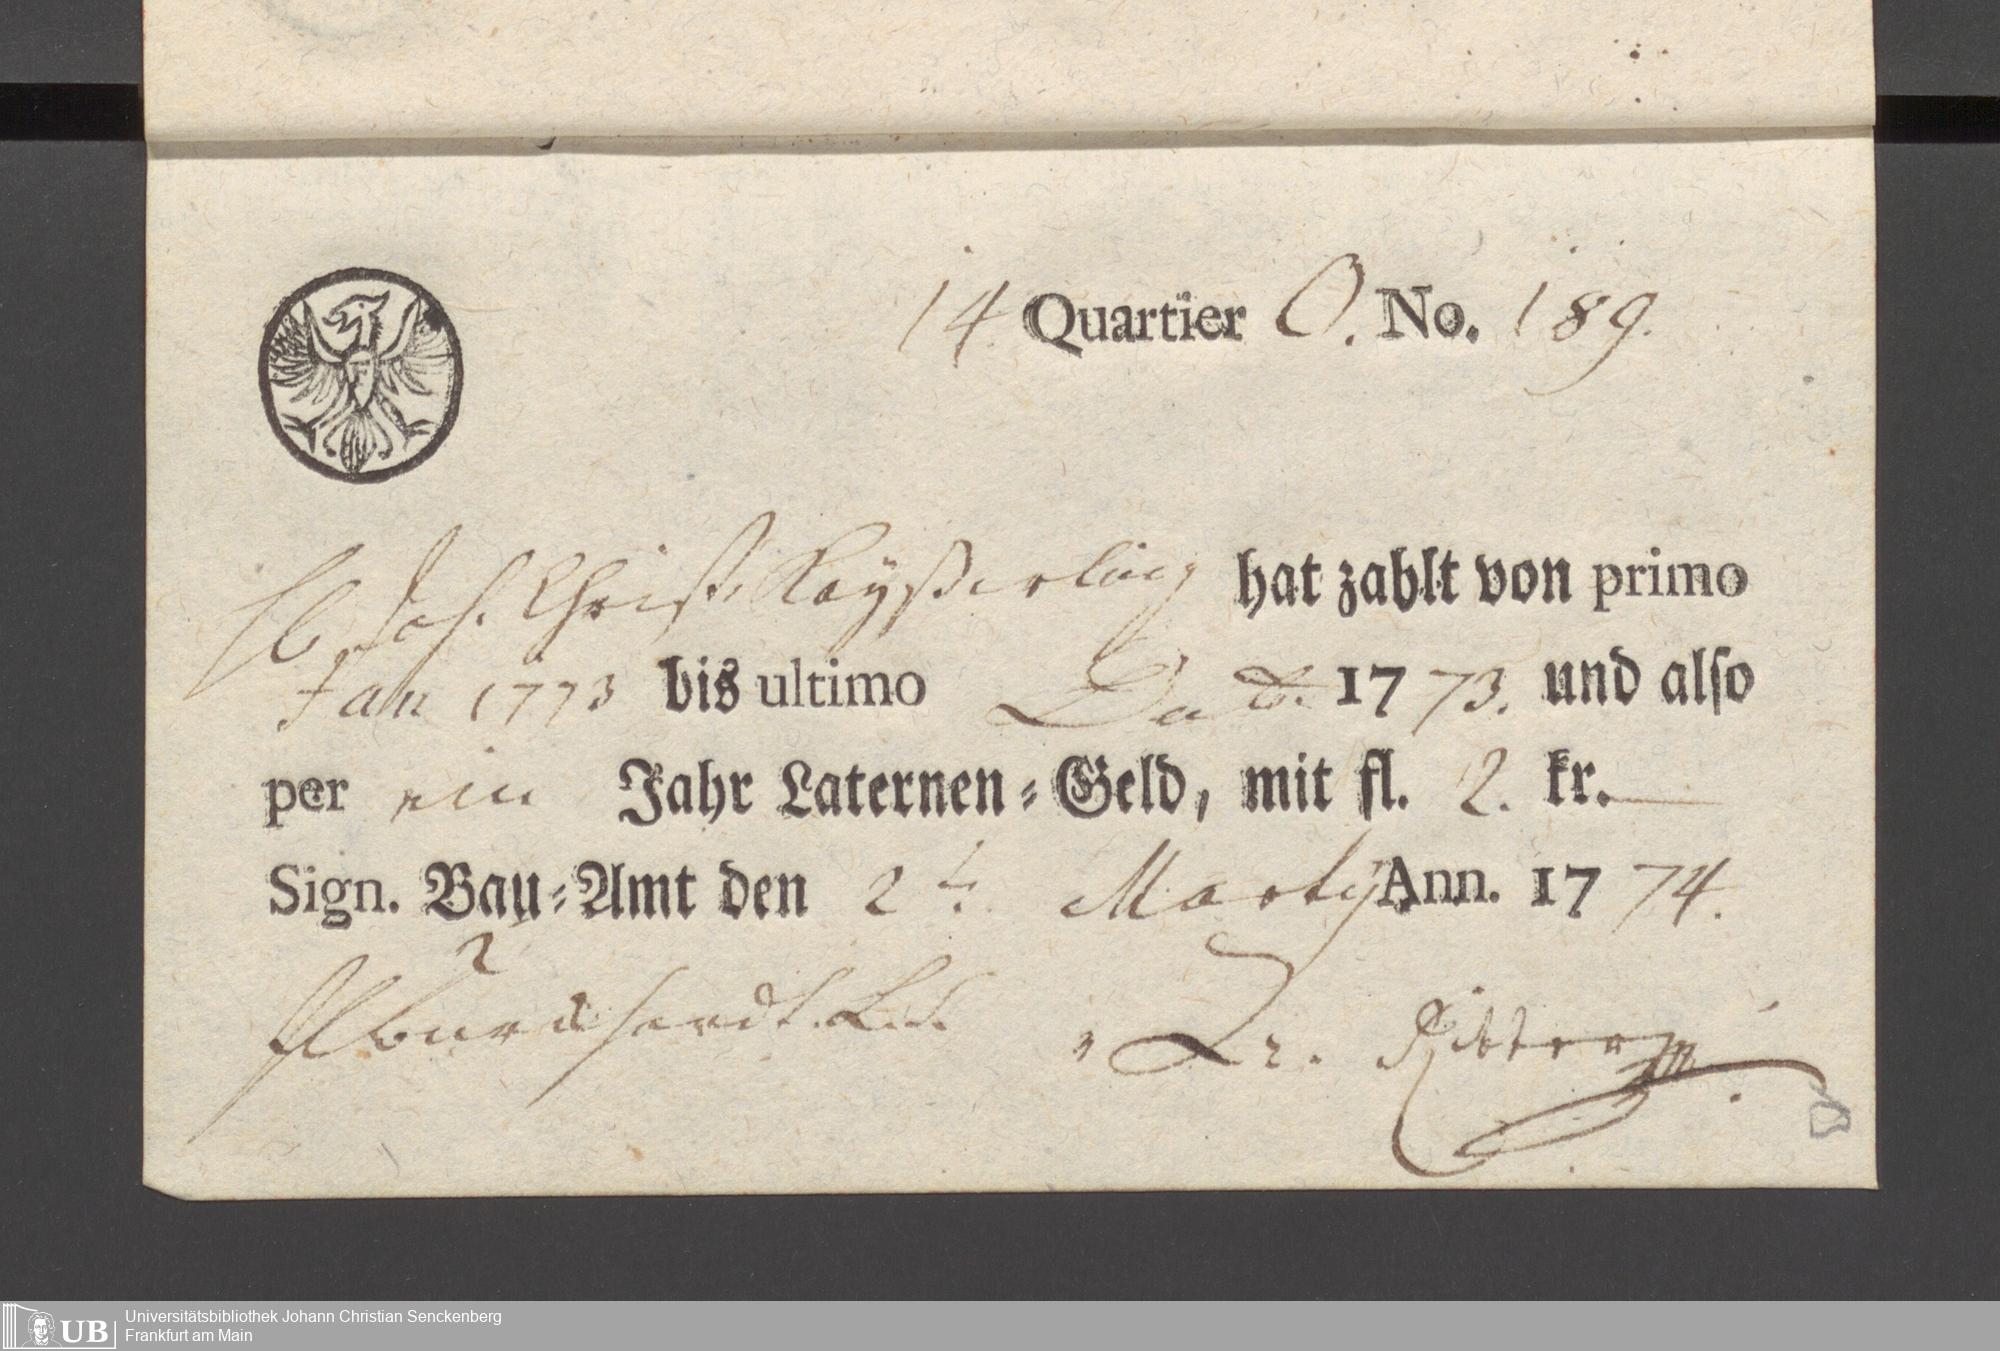 14. Quartier O. No. 189.
Hr. Joh. Christ. Kayßerling hat zahlt von primo
Jan 1773 bis ultimo Dec. 1773. und also
per ein Jahr Laternen-Geld, mit fl. 2. kr. —
Sign. Bau-Amt den 2t. Marty Ann. 1774.
Ritter
Universitätsbibliothek Johann Christian Senckenberg
Frankfurt am Main
UB